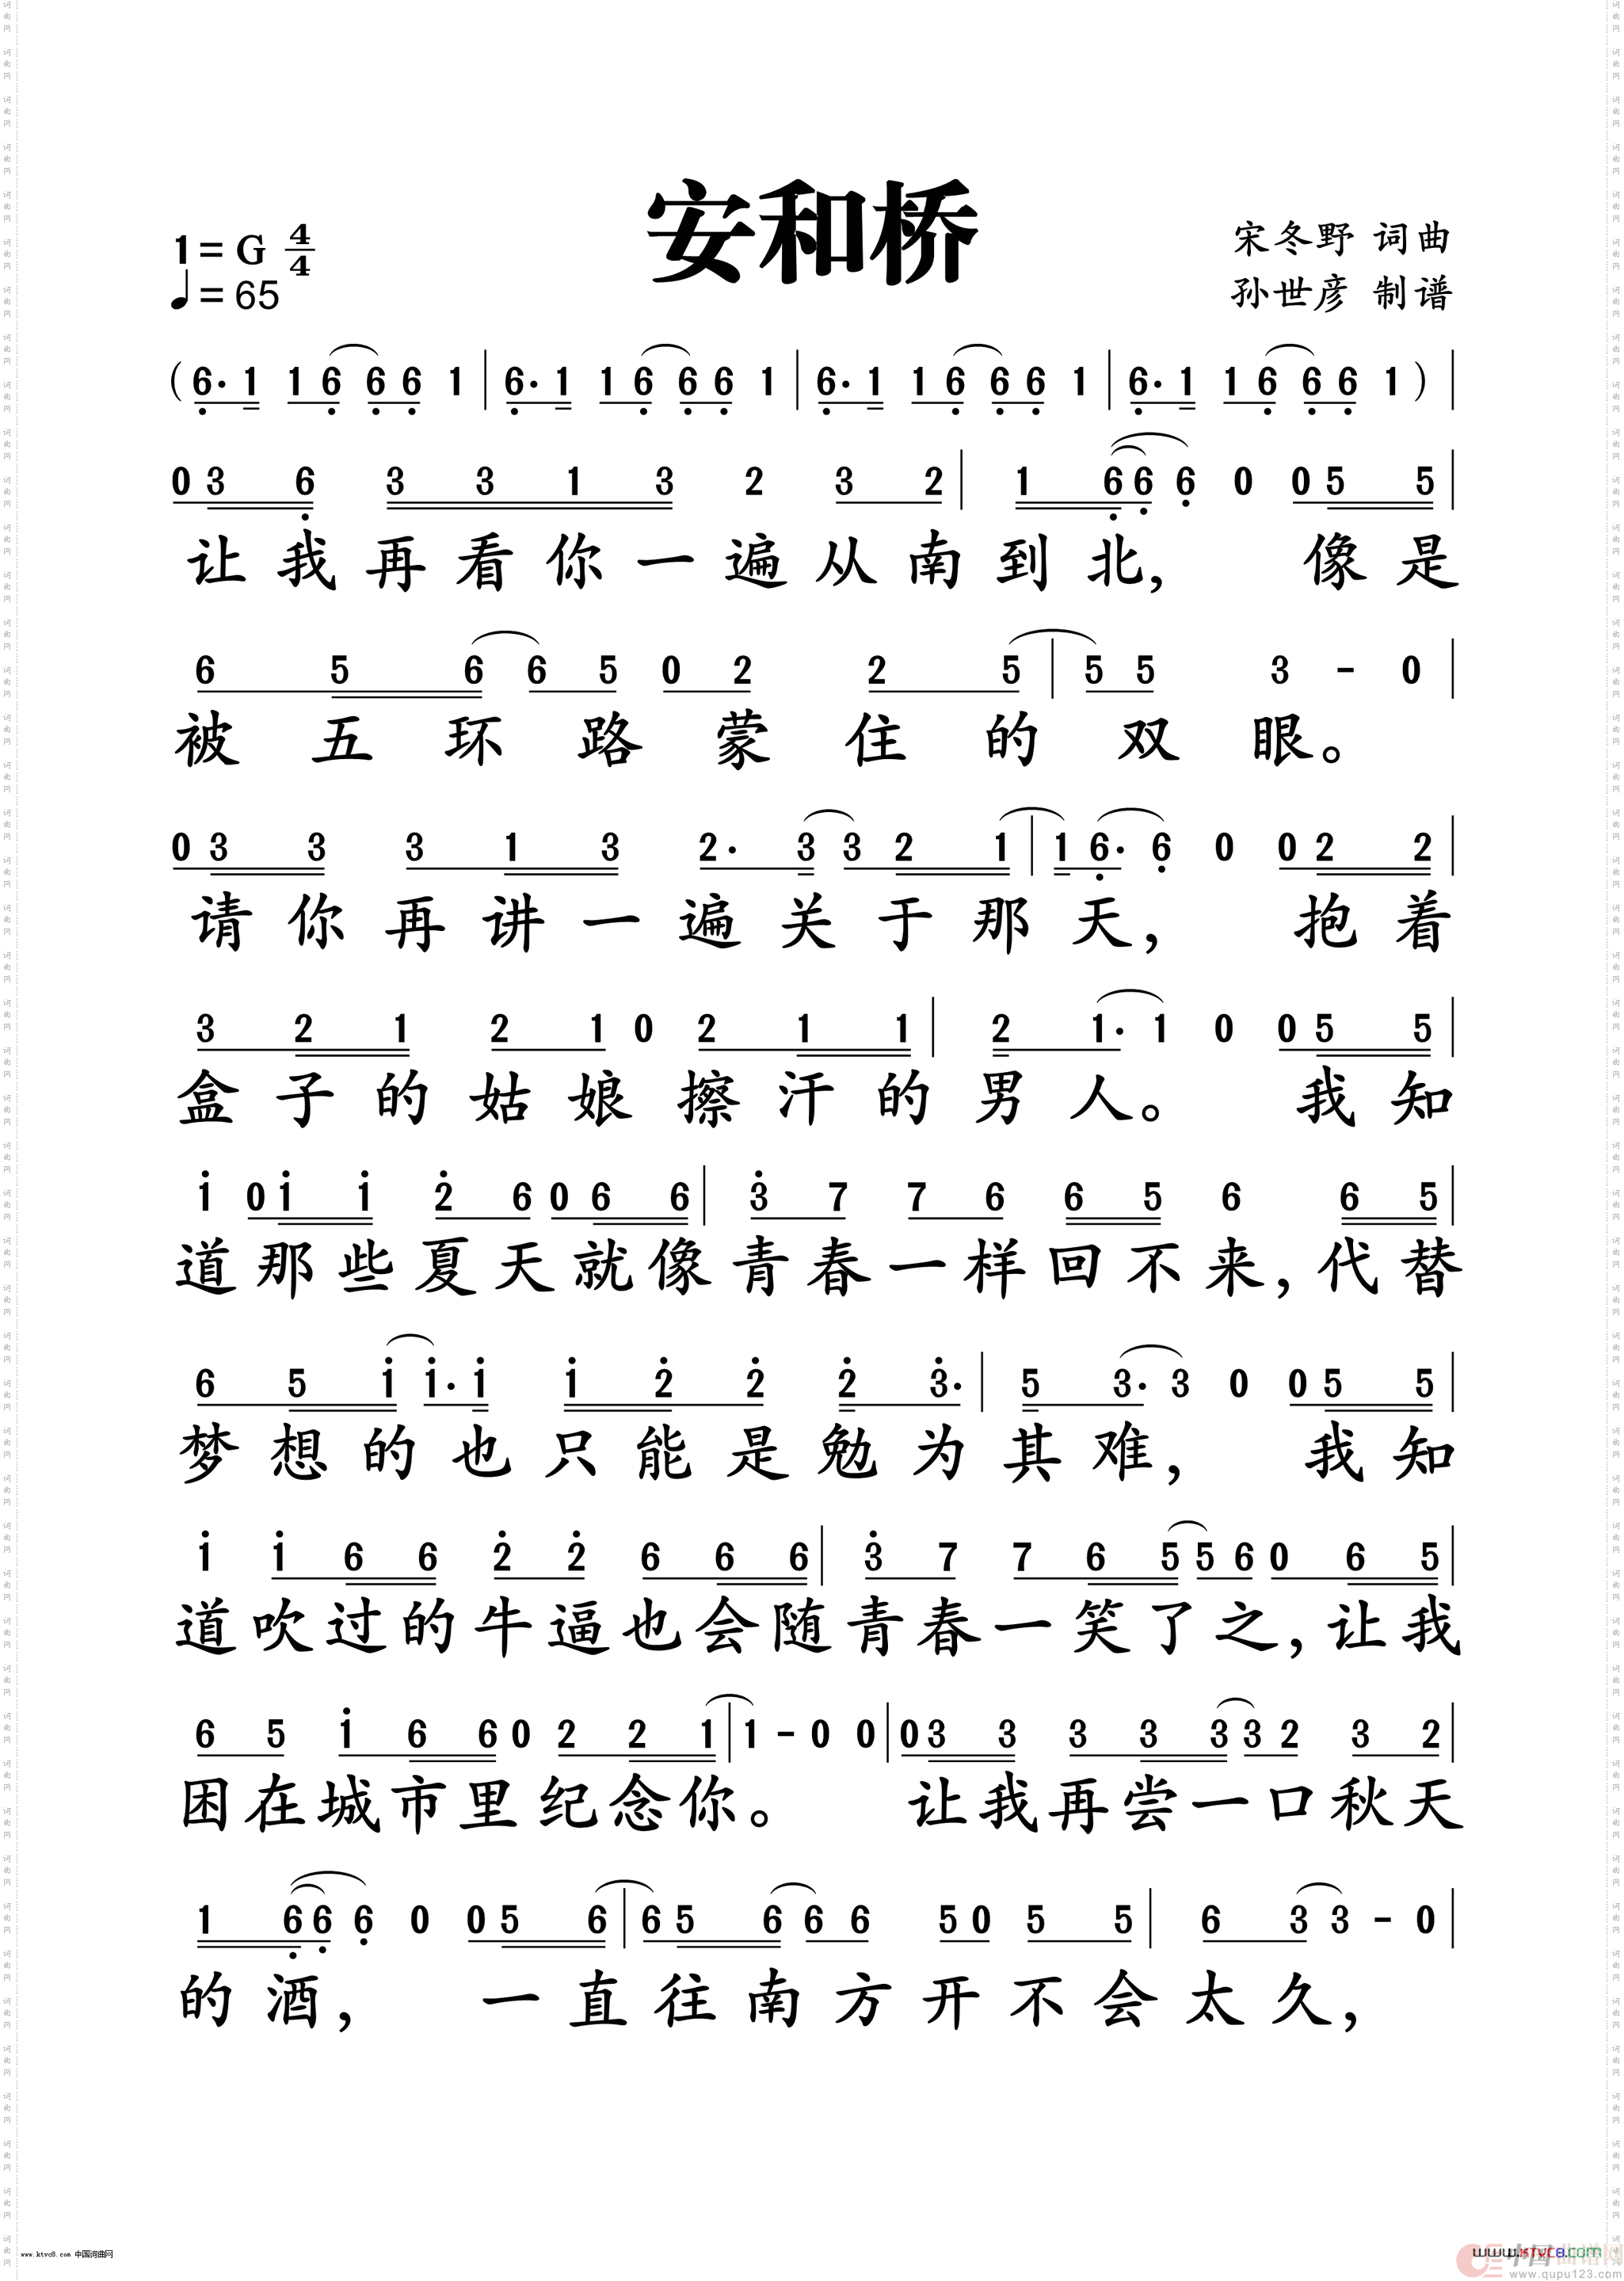 安和桥
1=G 4/4
♩=65
宋冬野 词曲
孙世彦 制谱
(6·1 16 66 1|6·1 16 66 1|6·1 16 66 1|6·1 16 66 1)|
03 6 3 3 1 3 2 3 2|1 66 6 0 05 5|
让我再看你一遍从南到北, 像是
6 5 6 6 5 0 2 2 5|5 5 3 - 0|
被五环路蒙住的双眼。
03 3 3 1 3 2· 3 3 2 1|1 6· 6 0 02 2|
请你再讲一遍关于那天, 抱着
3 2 1 2 1 0 2 1 1|2 1· 1 0 05 5|
盒子的姑娘擦汗的男人。 我知
i 0i i 2 6 06 6|3 7 7 6 6 5 6 6 5|
道那些夏天就像青春一样回不来,代替
6 5 i i· i i 2 2 2 3·|5 3· 3 0 05 5|
梦想的也只能是勉为其难, 我知
i i 6 6 2 2 6 6 6|3 7 7 6 5 5 6 0 6 5|
道吹过的牛逼也会随青春一笑了之,让我
6 5 i 6 6 0 2 2 1|1 - 0 0|03 3 3 3 3 3 2 3 2|
困在城市里纪念你。 让我再尝一口秋天
1 66 6 0 05 6|6 5 6 6 6 5 0 5 5|6 3 3 - 0|
的酒, 一直往南方开不会太久,
www.ktvc8.com 中国词曲网
www.KTVC8.com
中国曲谱网
www.qupu123.com